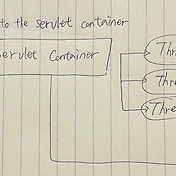 to the servlet container
Servlet Container
Thr
Thre
Thre